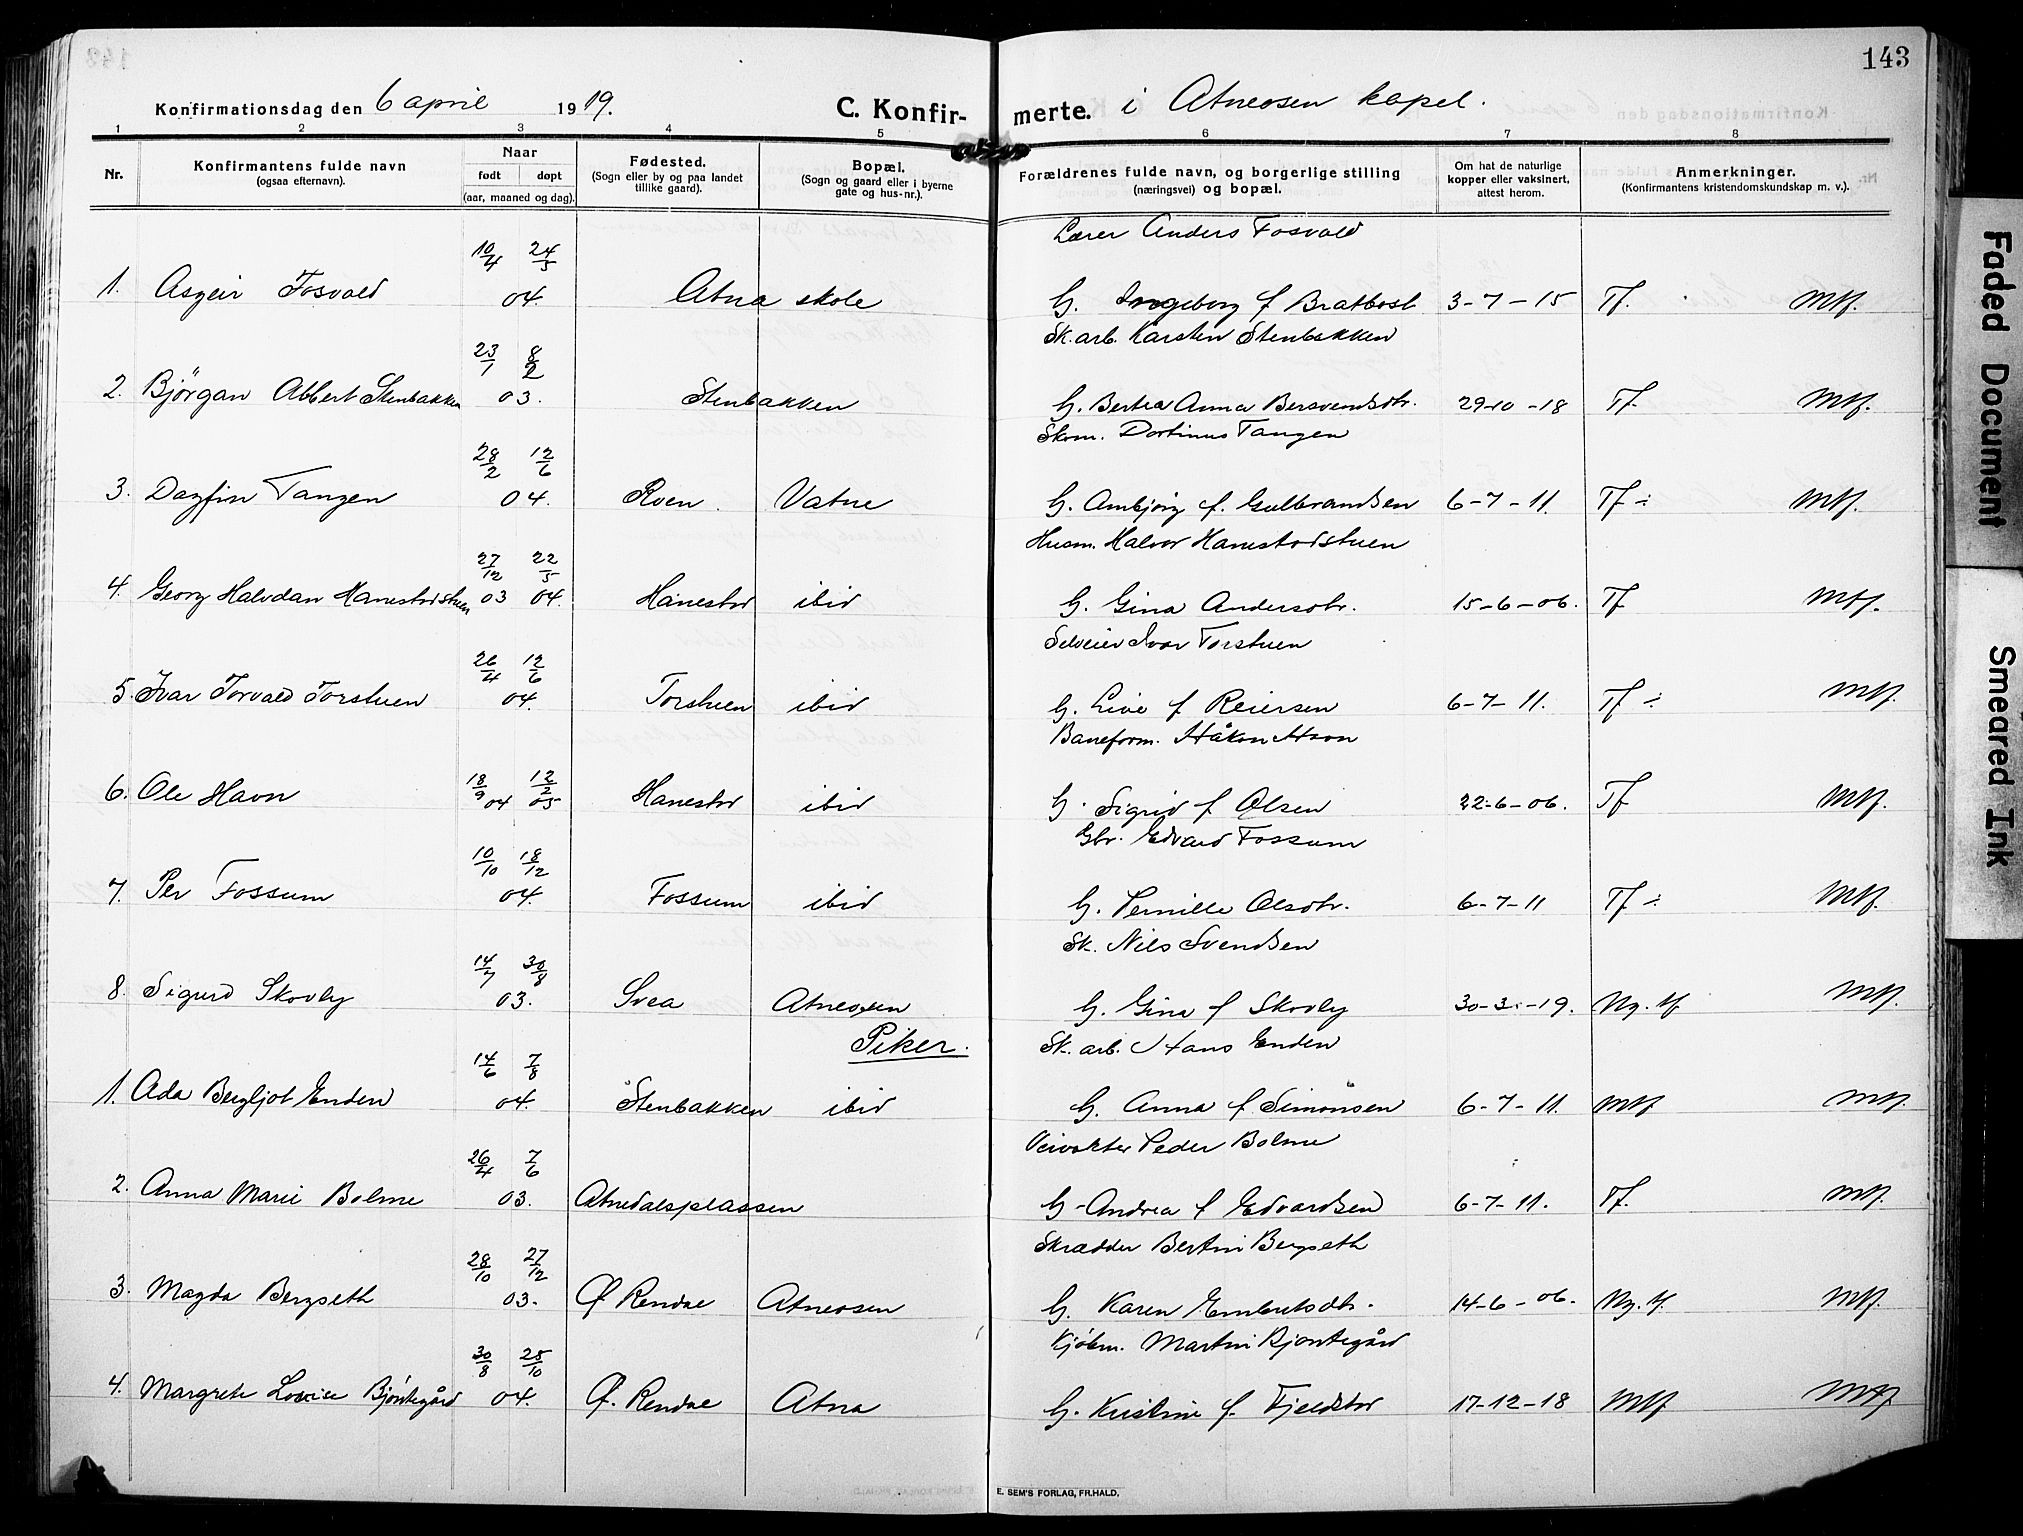 143
Konfirmationsdag den 6 april 1919. C. Konfirmerte. i Atneosen kapel.
1 2 3 4 5 6 7 8
Nr. Konfirmantens fulde navn (ogsaa efternavn). Naar født døpt (aar, maaned og dag). Fødested. (Sogn eller by og paa landet tillike gaard). Bopæl. (Sogn og gaard eller i byerne gate og hus-nr.). Forældrenes fulde navn, og borgerlige stilling (næringsvei) og bopæl. Om hat de naturlige kopper eller vaksinert, attest herom. Anmerkninger. (Konfirmantens kristendomskundskap m. v.).
10/4 24/5 Lærer Anders Fosvold
1. Asgeir Fosvold 04. Atna skole G. Ingeborg f Bratbost 3-7-15 Tf. Mtf.
23/1 8/2 Sk. arb. Karsten Stenbakken
2. Bjørgan Albert Stenbakken 03. Stenbakken G. Bertea Anna Bersvendsdtr. 29-10-18 Tf. Mtf.
28/2 12/6 Skom. Dortinus Tangen
3. Dagfin Tangen 04. Roen. Vatne G. Ambjørg f. Gulbrandsen 6-7-11. Tf ÷ Mtf.
27/12 22/5 Husm. Halvor Hanestodstuen
4. Georg Halvdan Hanestodstuen 03 04. Hanestod ibid G. Gina Andersdtr. 15-6-06. Tf Mtf.
26/4 12/6 Selveier Ivar Torstuen
5. Ivar Torvald Torstuen 04. Torstuen ibid G. Live f Reiersen 6-7-11. Tf ÷ Mtf.
Baneform. Håkon Havn
6. Ole Havn 18/9 04 12/2 05 Hanestod ibid G. Sigrid f Olsen 22-6-06. Tf Mtf.
10/10 18/12 Gbr. Edvard Fossum
7. Per Fossum 04. Fossum ibid G. Pernille Olsdtr. 6-7-11 Tf ÷ Mtf.
14/7 30/8 Sk. Nils Svendsen
8. Sigurd Skovly 03. Svea Atneosen G. Gina f Skovly 30-3-19. Ng. tf Mtf.
Piker.
14/6 7/8 Sk. arb. Hans Enden
1. Ada Bergljot Enden 04. Stenbakken ibid G. Anna f Simonsen 6-7-11. Mtf Mtf.
26/4 7/6 Veivokter Peder Bolme
2. Anna Marie Bolme 03. Atnedalsplassen G. Andrea f Edvardsen 6-7-11. Tf. Mtf.
28/10 27/12 Skrædder Bertin Bergseth
3. Magda Bergseth 03. Ø. Rendal Atneosen G. Karen Embretsdtr. 14-6-06. Ng. tf. Mtf.
30/8 25/10 Kjøbm. Martin Bjøntegård
4. Margrete Lovise Bjøntegård 04. Ø. Rendal Atna G. Kristine f. Fjeldstod 17-12-18 Mtf Mtf
E. SEM'S FORLAG, FR.HALD.
Faded Document
Smeared Ink